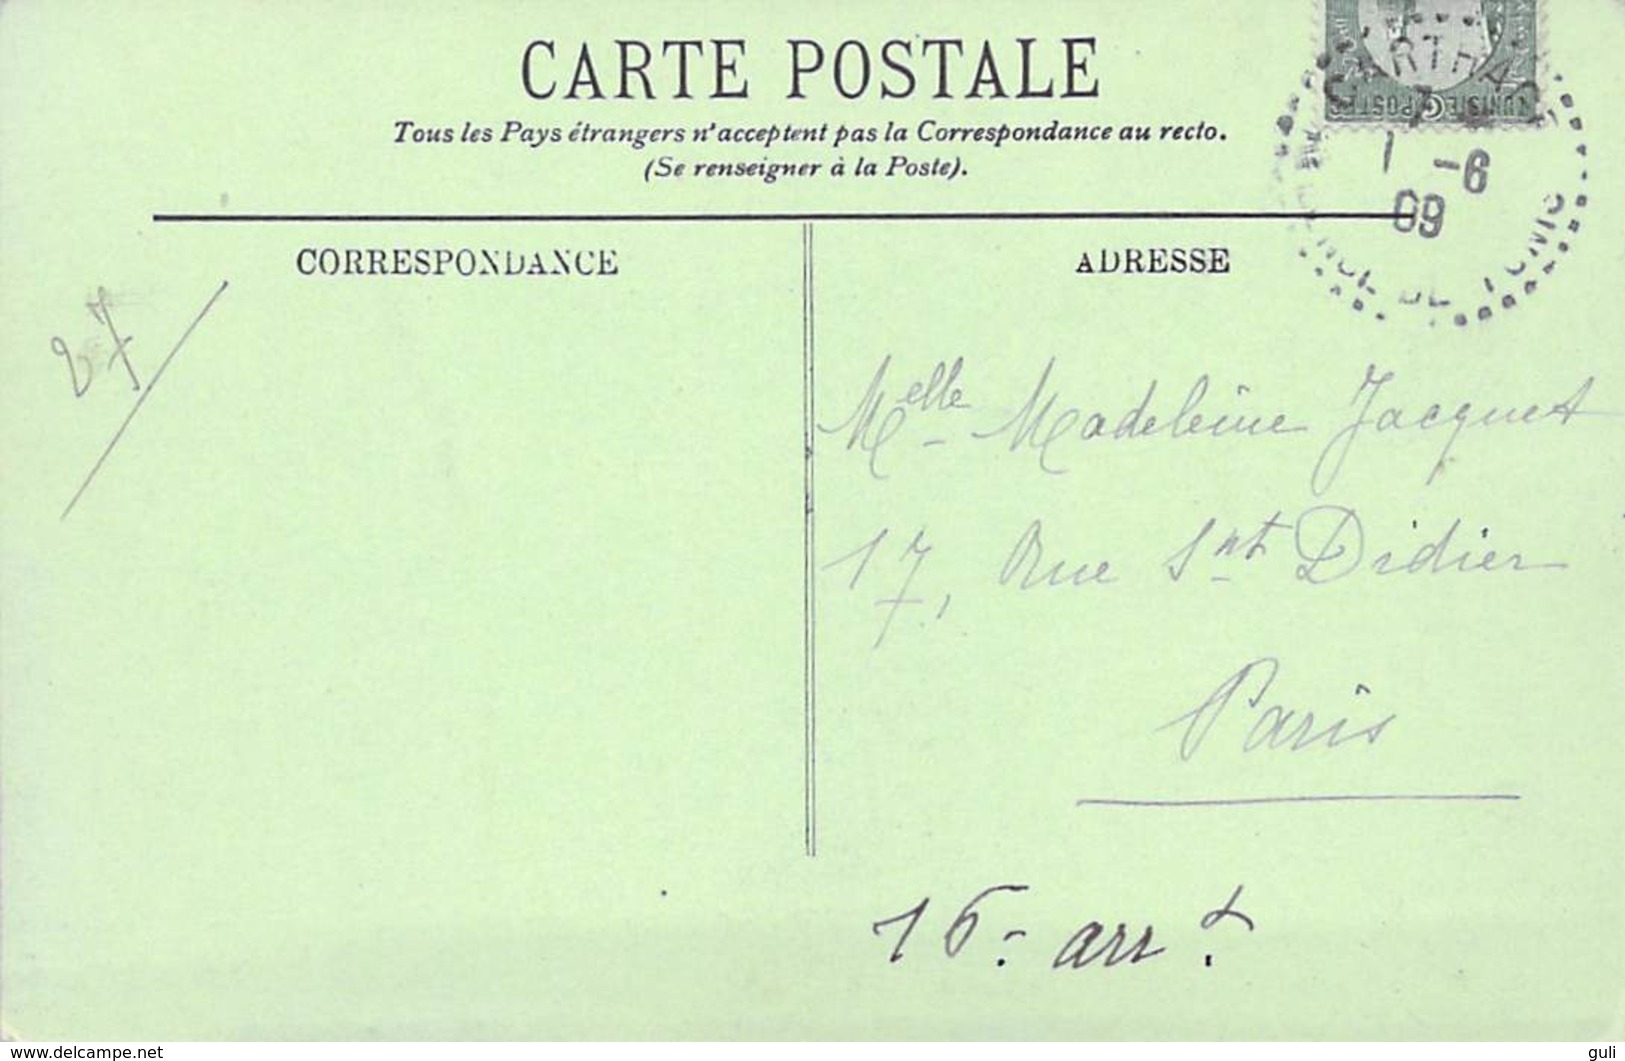 CARTE POSTALE
Tous les Pays étrangers n'acceptent pas la Correspondance au recto.
(Se renseigner à la Poste).
CARTHAGE
TUNISIE POSTES
1 -6
09
DE TUNIS
CORRESPONDANCE
ADRESSE
27
Melle Madeleine Jacquet
17, Rue Snt Didier
Paris
16 - arrt
www.delcampe.net
guli